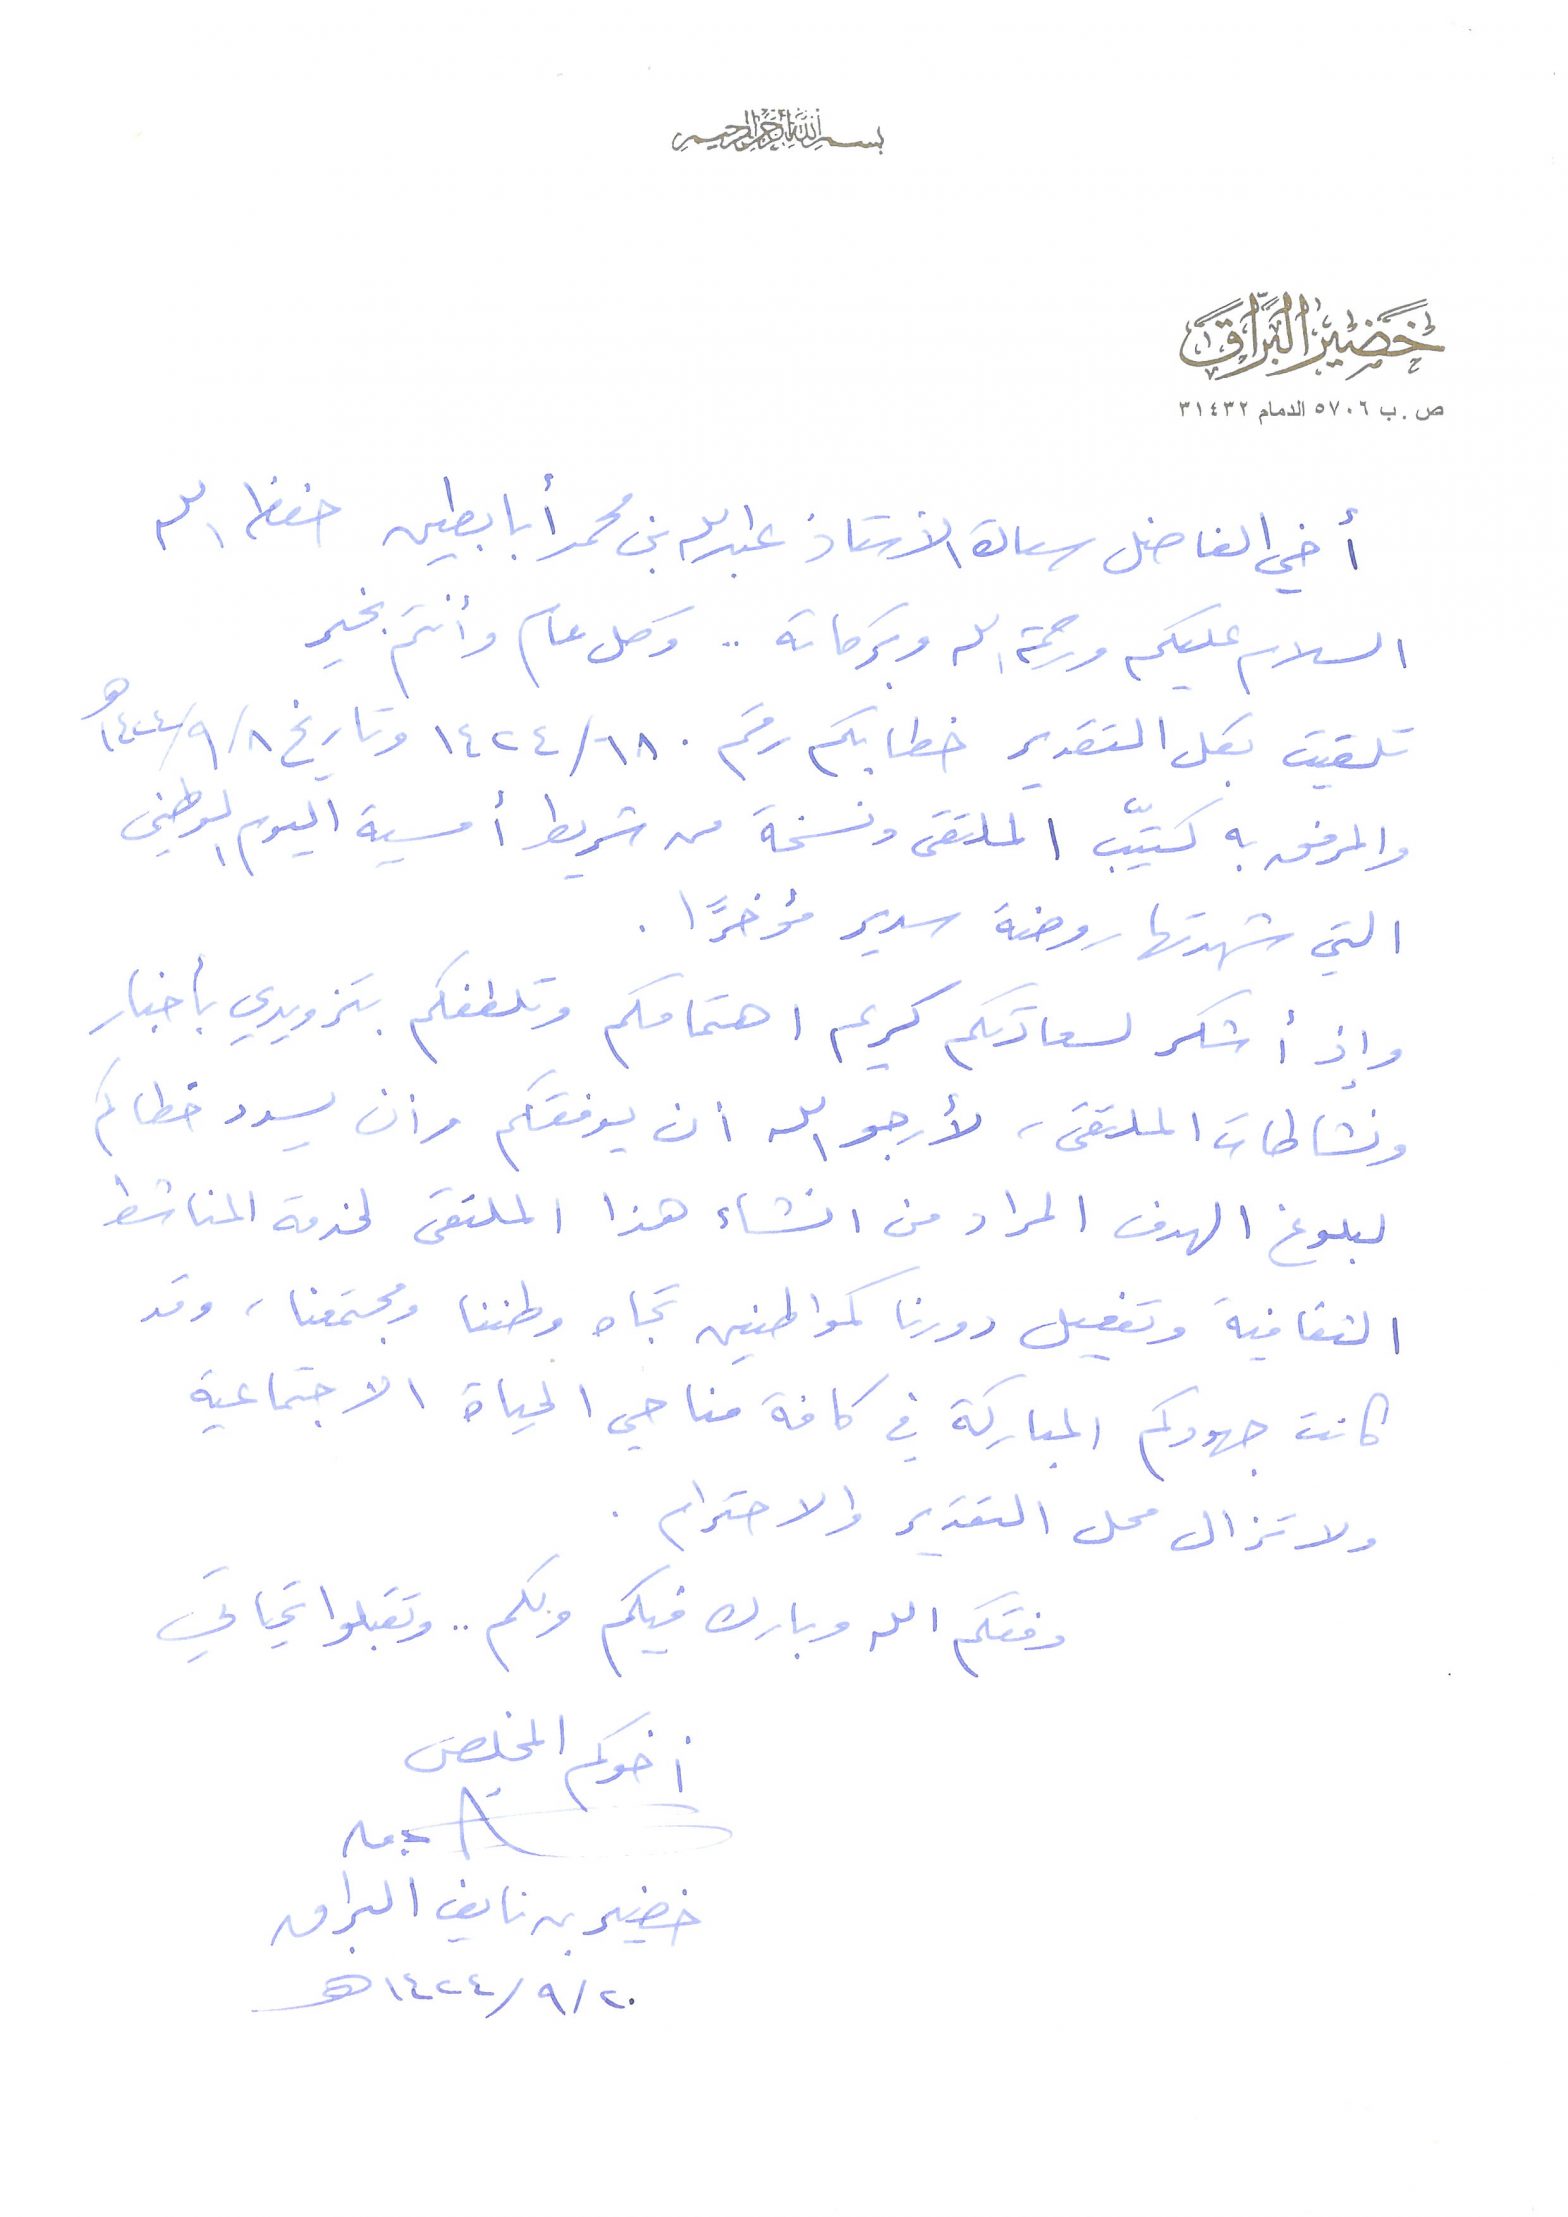 بسم الله الرحمن الرحيم
خضير البراق
ص . ب ٥٧٠٦ الدمام ٣١٤٣٢
أخي الفاضل سعادة الأستاذ عبدالله بن محمد أبابطين حفظه الله
السلام عليكم ورحمة الله وبركاته .. وكل عام وأنتم بخير
تلقيت بكل التقدير خطابكم رقم ١٤٢٤ وتاريخ ١٤٢٤/٩/٨هـ
والمرفق به كتيّب الملتقى ونسخة من شريط أمسية اليوم الوطني
التي شهدتها روضة سدير مؤخرًا .
وإذ أشكر لسعادتكم كريم اهتمامكم وتلطفكم بتزويدي بأخبار
ونشاطات الملتقى، لأرجو الله ان يوفقكم وان يسدد خطاكم
لبلوغ الهدف المراد من انشاء هذا الملتقى لخدمة المناشط
الثقافية وتفعيل دورنا كمواطنين تجاه وطننا ومجتمعنا، وقد
كانت جهودكم المباركة في كافة مناحي الحياة الاجتماعية
ولا تزال محل التقدير والاحترام .
وفقكم الله وبارك فيكم وبكم .. وتقبلوا تحياتي
أخوكم المخلص
خضير بن نايف البراق
١٤٢٤/٩/٢٠هـ